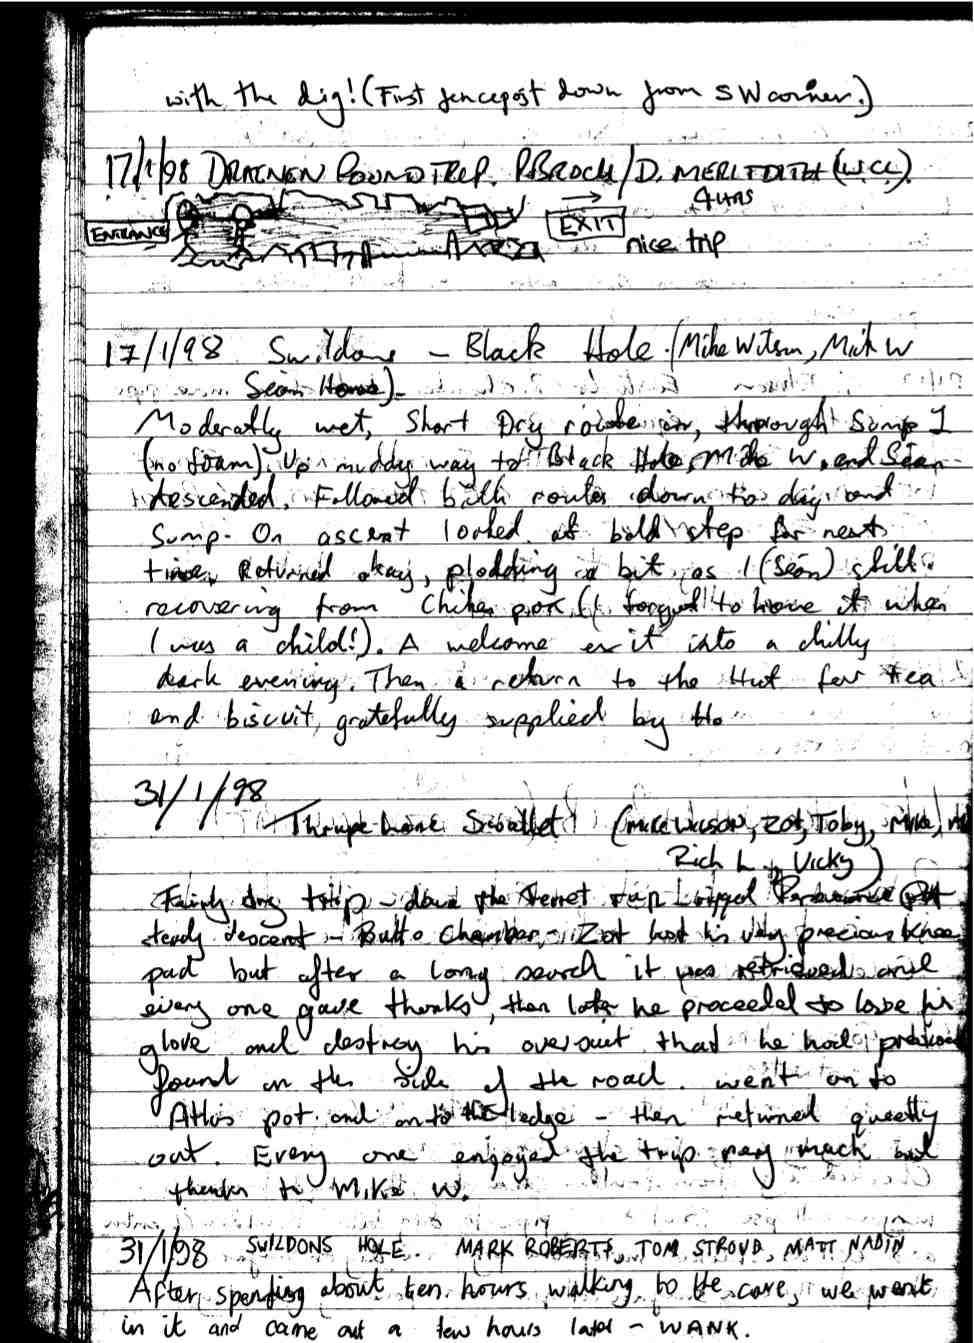 with the dig! (First fencepost down from SW corner.)
17/1/98 DRAENEN ROUND TRIP. P.BROCK / D. MEREDITH (WCC).
4HRS
ENTRANCE
EXIT
nice trip
17/1/98 Swildons - Black Hole. (Mike Wilson, Mick W
Seán Howe).
Moderatly wet, Short Dry route in, through Sump 1
(no foam), up muddy way to Black Hole, Mike W, and Seán
descended. Followed both routes down to dig and
Sump. On ascent looked at bold step for next
time. Returned okay, plodding a bit, as I (Seán) still
recovering from Chiken pox (I forgot to have it when
I was a child!). A welcome exit into a chilly
dark evening. Then a return to the Hut for tea
and biscuit, gratefully supplied by
31/1/98
Thrupe Lane Swallet (Mike Wilson, Zot, Toby, Mike,
Rich L, Vicky)
Fairly dry trip - down the Ferret run Rigged Perseverance Pot
steady descent - Butto Chamber - Zot lost his very precious knee
pad but after a long search it was retrieved and
every one gave thanks, then later he proceeded to lose his
glove and destroy his oversuit that he had
found on the side of the road. went on to
Atlas pot and onto the ledge - then returned quietly
out. Every one enjoyed the trip very much and
thanks to Mike W.
31/1/98 SWILDONS HOLE. MARK ROBERTS, TOM STROUD, MATT NADIN
After spending about ten hours walking to the cave, we went
in it and came out a few hours later - WANK.